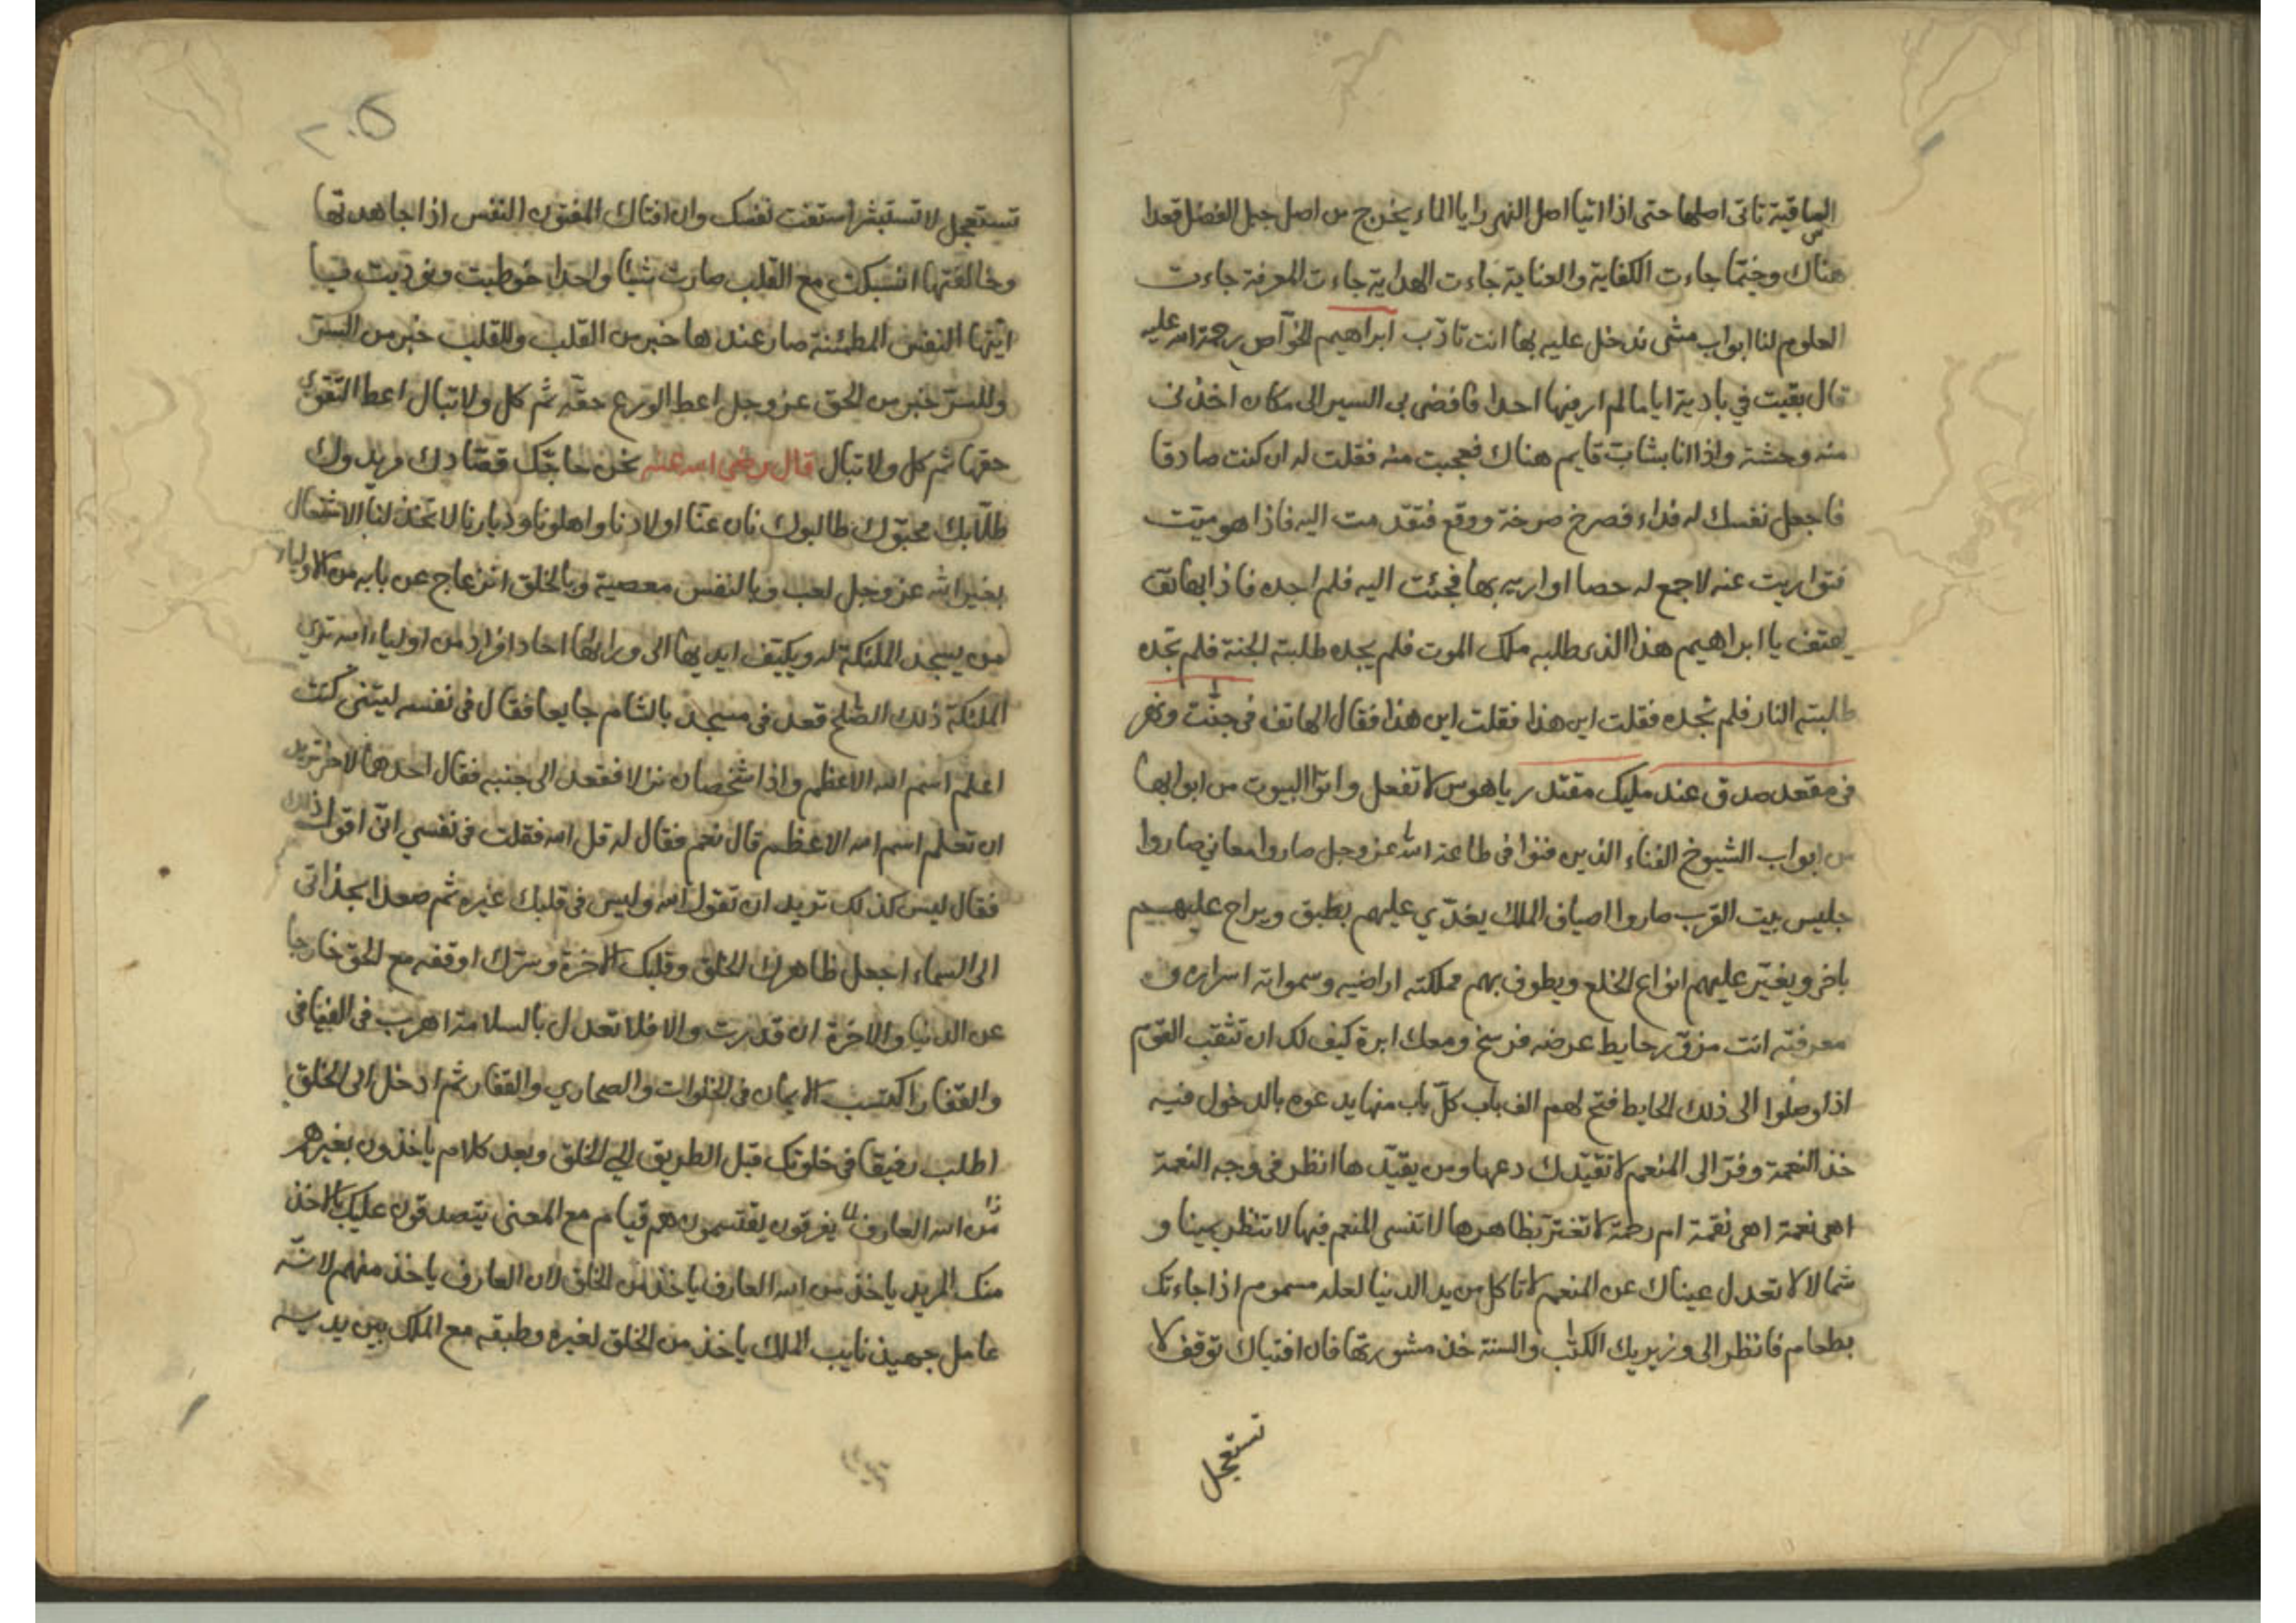 الساقية تاتى اصلها حتى اذا اتيا اصل النهر رايا الماء يخرج من اصل جبل الفضل قعدا
هناك وخيّما جاءت الكفاية والعناية جاءت الهداية جاءت المعرفة جاءت
العلوم لنا ابواب مشى ندخل عليه بها انت تادّب ابراهيم الخوّاص رحمة الله عليه
قال بقيت في بادية اياما لم ار فيها احدا فافضى بى السير الى مكان اخذنى
منه وحشة واذا انا بشابّ قايم هناك فعجبت منه فقلت له ان كنت صادقا
فاجعل نفسك له فداء فصرخ صرخة ووقع فتقدمت اليه فاذا هو ميّت
فتواريت عنه لاجمع له حصا اواريه بها فجئت اليه فلم اجده فاذا بهاتف
يهتف يا ابراهيم هذا الذى طلبه ملك الموت فلم يجده طلبته الجنة فلم تجده
طلبته النار فلم تجده فقلت اين هذا فقلت اين هذا فقال الهاتف فى جنّت ونهر
فى مقعد صدق عند مليك مقتدر يا هوس لا تفعل واتوا البيوت من ابوابها
من ابواب الشيوخ الفناء الذين فنوا فى طاعة الله عز وجل صاروا معاني صاروا
جليس بيت القرب صاروا اضياف الملك يغدّي عليهم بطبق ويراح عليهم
باخر ويغيّر عليهم انواع الخلع ويطوف بهم مملكته اراضيه وسمواته اسراره و
معرفته انت مزوّر حايط عرضه فرسخ ومعك ابرة كيف لك ان تثقب القوم
اذا وصلوا الى ذلك الحايط فتح لهم الف باب كلّ باب منها يدعوه بالدخول فيه
خذ النعمة وفرّ الى المنعم لا تقيّدك دعها ومن يقيّدها انظر فى وجه النعمة
اهى نعمة اهى نقمة ام رحمة لا تغترّ بظاهرها لا تنسى المنعم فيها لا تنظر يمينا و
شمالا لا تعدل عيناك عن المنعم لا تاكل من يد الدنيا لعله مسموم اذا جاءتك
بطعام فانظر الى وزيريك الكتب والسنة خذ مشورتها فان افتياك توقف لا
تستعجل
٢٠٥
تستعجل لا تستبشر استفت نفسك وان افتاك المفتون النفس اذا جاهدتها
وخالفتها انسبكت مع القلب صارت شيئا واحدا خوطبت ونوديت بيا
ايتها النفس المطمئنة صار عندها خبر من القلب وللقلب خبر من السرّ
وللسرّ خبر من الحق عز وجل اعط الورع حقّه ثم كل ولا تبال اعط التقوى
حقها ثم كل ولا تبال قال رضي الله عنه نحن حاجّك قصّادك مريدوك
طلّابك محبّوك طالبوك نان عنّا اولادنا واهلونا وديارنا لا تحذ لنا الاشتغال
بغير الله عز وجل لعب وبالنفس معصية وبالخلق انزعاج عن بابه من الاولياء
من يسجد الملئكة له ويكيّف ايديها الى ورائها احاد افراد من اولياء الله ترى
الملئكة ذلك الصّلح قعد فى مسجد بالشام جايعا فقال فى نفسه ليتنى كنت
اعلم اسم الله الاعظم واذا شخصان نزلا فقعد الى جنبه فقال احدهما للاخر تريد
ان تعلم اسم الله الاعظم قال نعم فقال له قل الله فقلت فى نفسي انى اقول ذلك
فقال ليس كذلك تريد ان تقول الله وليس فى قلبك غيره ثم صعدا بحذاتى
الى السماء اجعل ظاهرك للخلق وقلبك للاخرة وسرّك اوقفه مع الحق خارجا
عن الدنيا والاخرة ان قدرت والا فلا تعدل بالسلامة اهرب فى الفيافى
والقفار اكتسب الايمان فى الخلوات والصحاري والقفار ثم ادخل الى الخلق
اطلب رفيقا فى خلوتك قبل الطريق الى الخلق وبعد كلام ياخذون بغيرهم
من الله العارف يفرقون يقتسمون هم قيام مع المعنى يتصدقون عليك بالاخذ
منك المريد ياخذ من الله العارف ياخذ من الخلق لان العارف ياخذ منهم لانّه
عامل جهبذ نايب الملك ياخذ من الخلق لغيره وطبقه مع الملك بين يديه